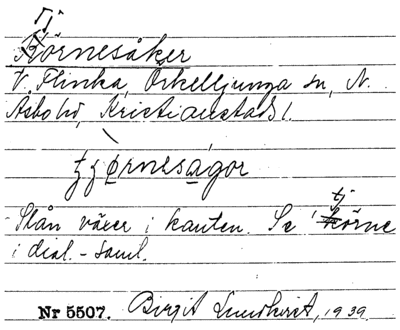 Tjörnesåker
V. Flinka, Örkelljunga sn, N.
Åsbo hd, Kristianstads l.
tjørnesågor
Slån växer i kanten. Se tjörne
i dial.-saml.
Nr 5507. Birgit Lundkvist, 1939.